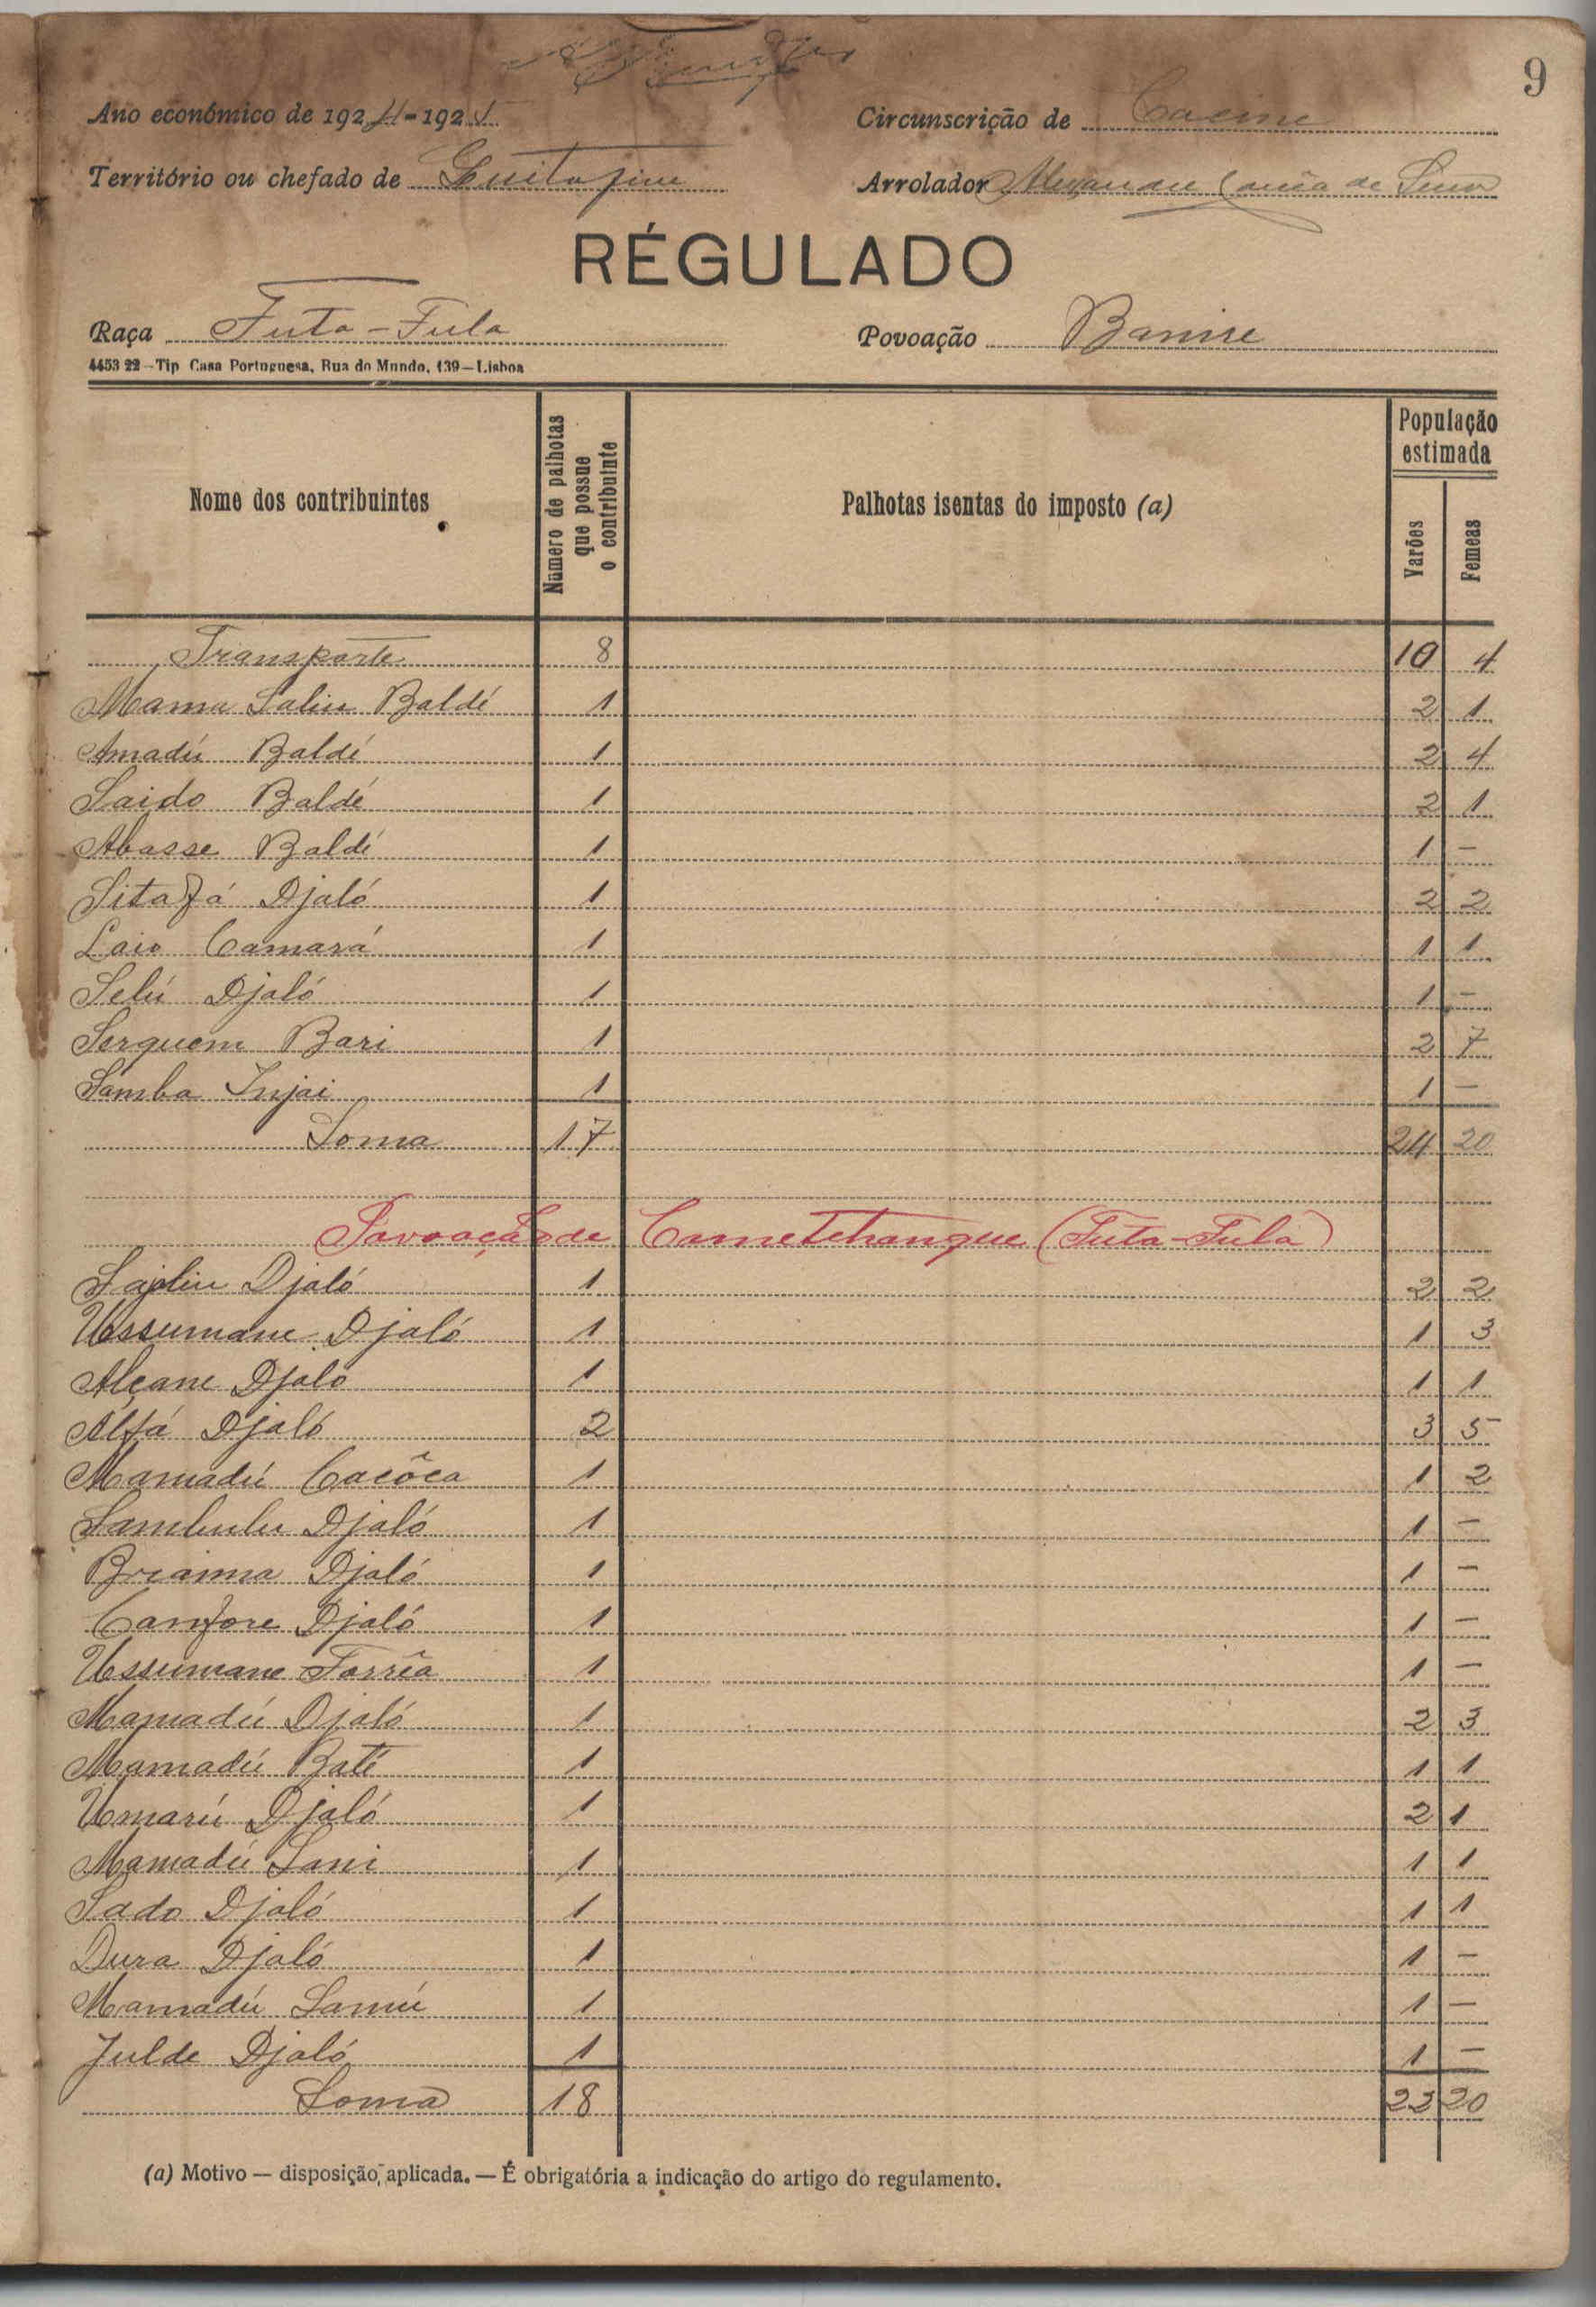 9
Ano económico de 1924-1925 Circunscrição de Cacine
Território ou chefado de Guitafine Arrolador de
RÉGULADO
Raça Futa-Fula Povoação Banire
4453 22 - Tip Casa Portuguesa, Rua do Mundo, 139 - Lisboa
Nome dos contribuintes Número de palhotas que possue o contribuinte Palhotas isentas do imposto (a) População estimada Varões Femeas
Transporte 8 10 4
Mama Saliu Baldé 1 2 1
Amadú Baldé 1 2 4
Saido Baldé 1 2 1
Abasse Baldé 1 1 -
Sitafá Djaló 1 2 2
Laio Camará 1 1 1
Selú Djaló 1 1 -
Serquem Bari 1 2 7
Samba Injai 1 1 -
Soma 17 24 20
Povoação de Cametchanque (Futa-Fula)
Djaló 1 2 2
Ussumane Djaló 1 1 3
Alçane Djalo 1 1 1
Alfá Djaló 2 3 5
Mamadú Cacôca 1 1 2
Sambulu Djaló 1 1 -
Braima Djaló 1 1 -
Canfore Djaló 1 1 -
Ussumane Farrêa 1 1 -
Mamadú Djaló 1 2 3
Mamadú Baté 1 1 1
Umarú Djaló 1 2 1
Mamadú Sani 1 1 1
Sado Djaló 1 1 1
Dura Djaló 1 1 -
Mamadú Samú 1 1 -
Julde Djaló 1 1 -
Soma 18 22 20
(a) Motivo — disposição aplicada. — É obrigatória a indicação do artigo do regulamento.